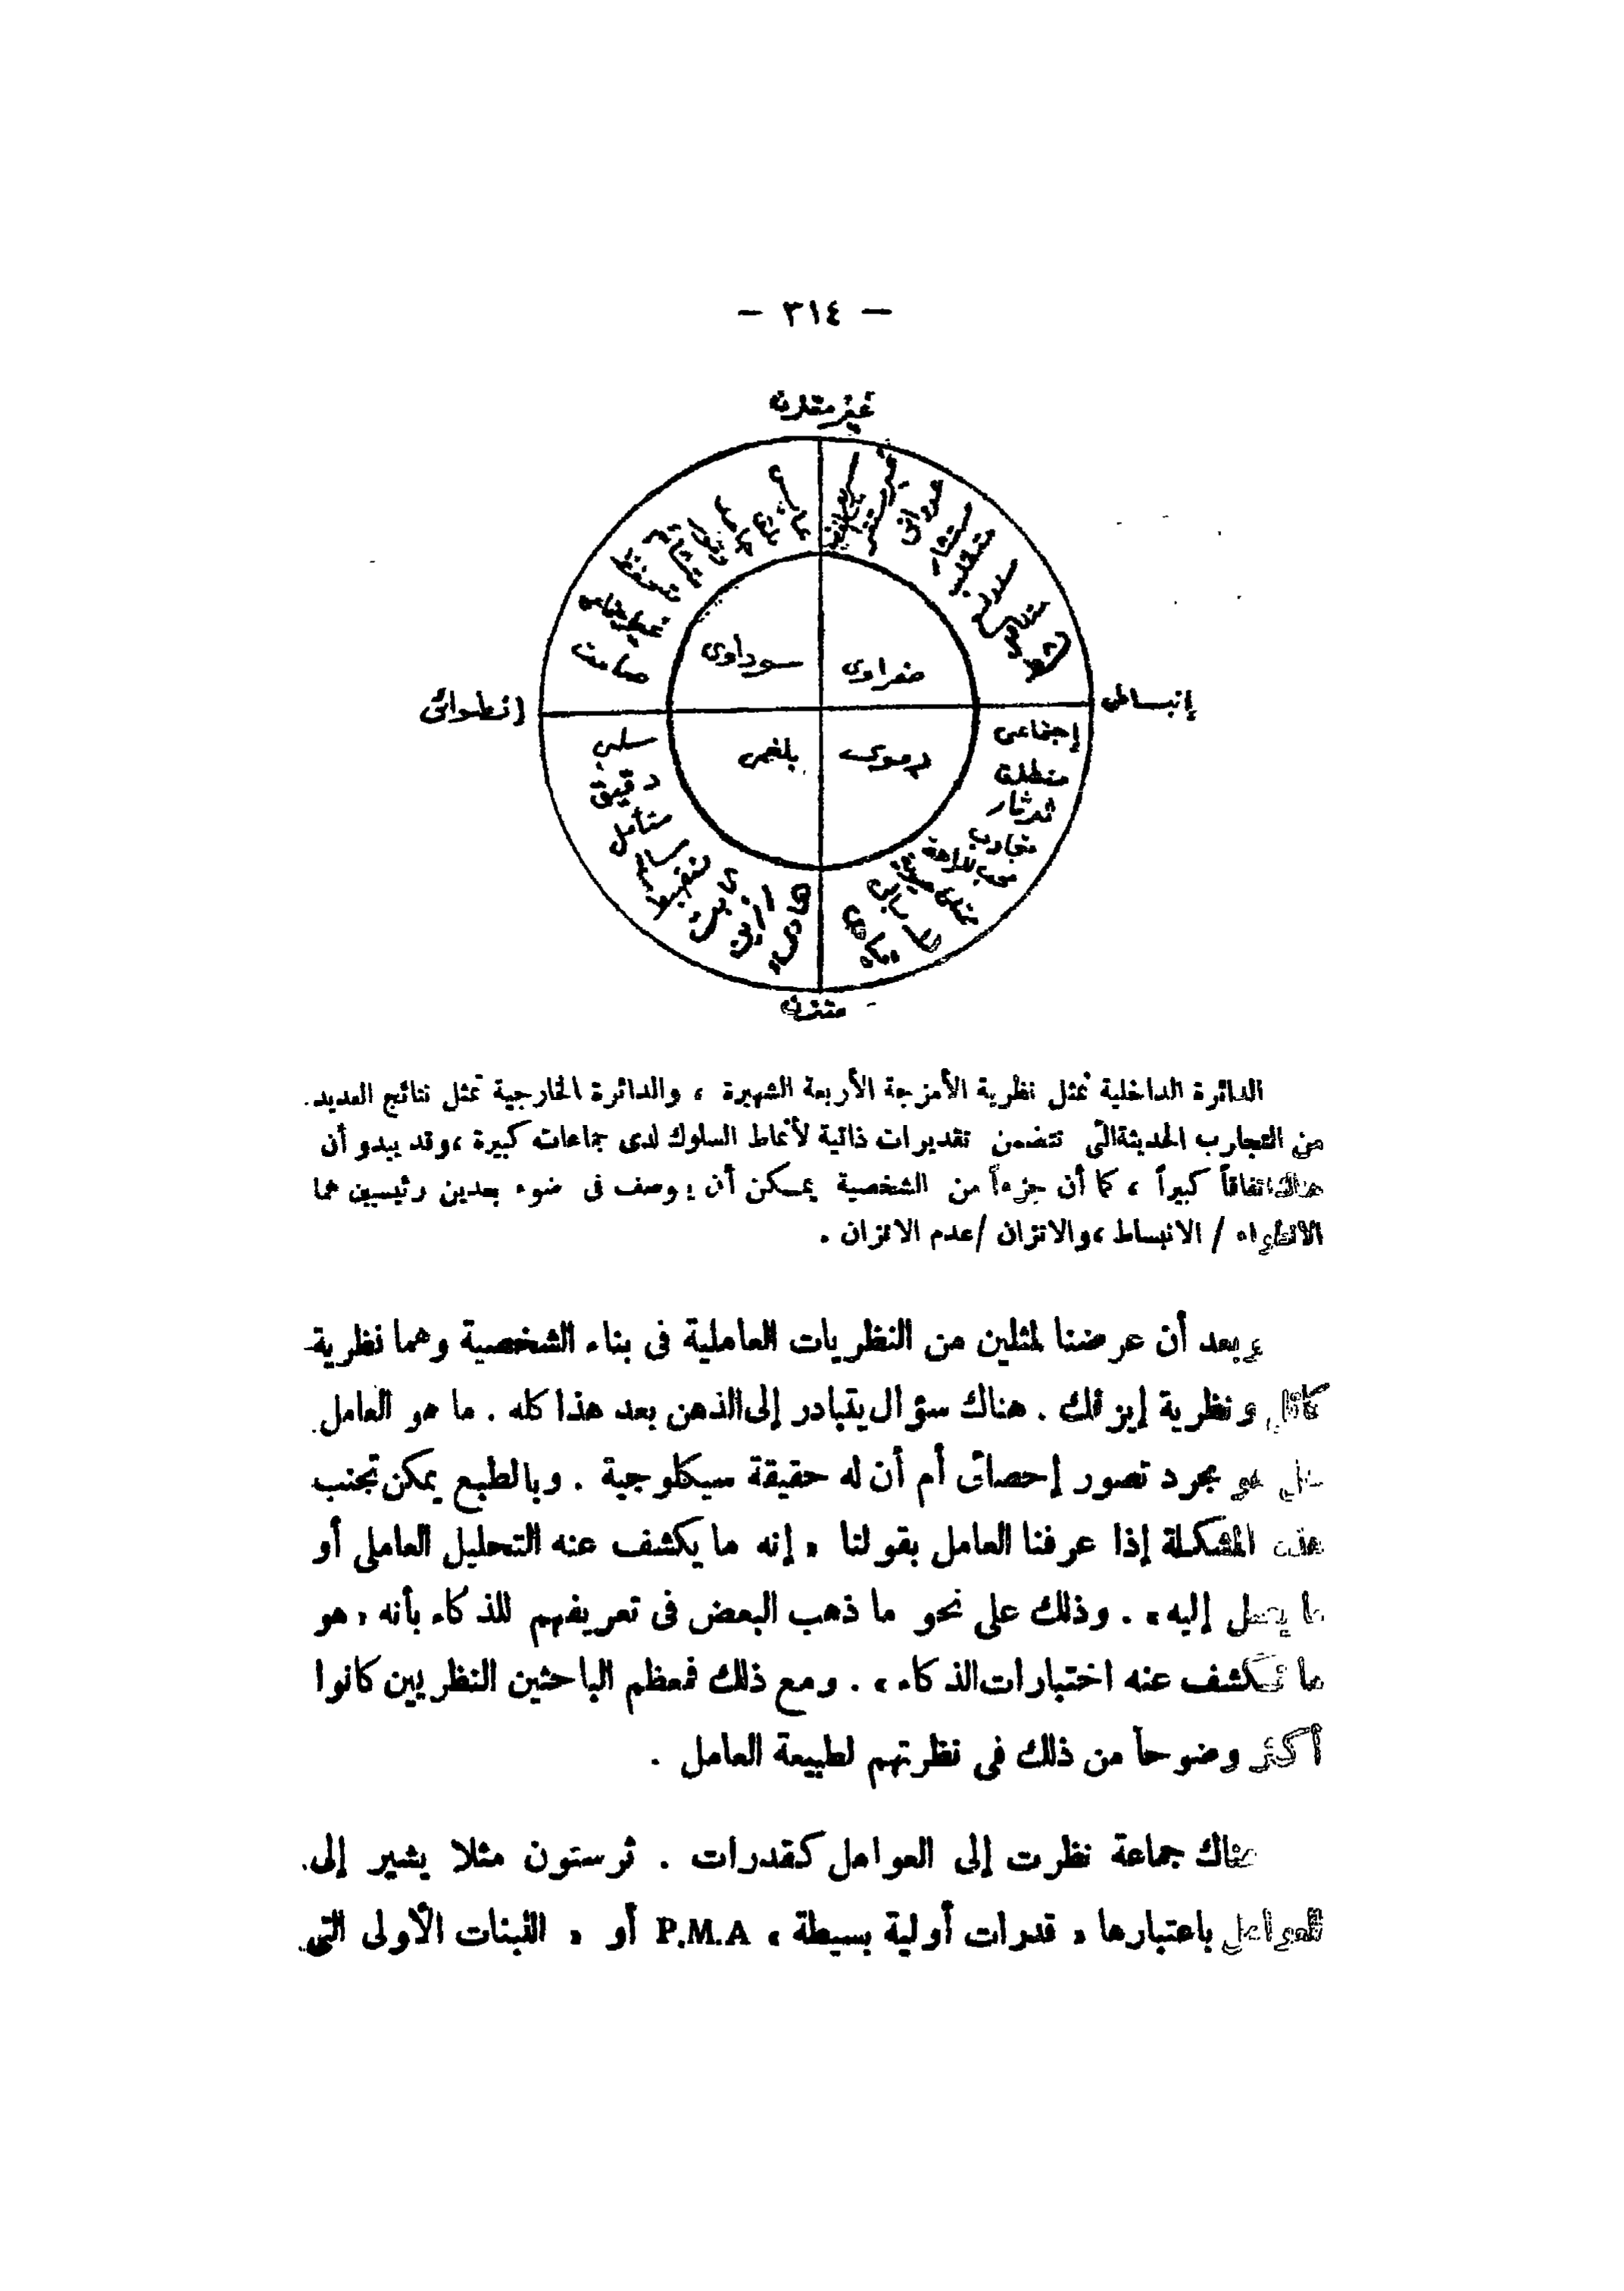 — ٣١٤ —
غير متزن
عدوانى
مستثار
متقلب
متفائل
نشط
متحفظ
صامت
سوداوى
صفراوى
انطوائى
إنبساطى
بلغمى
دموى
سلبى
دقيق
متأمل
إجتماعى
منطلق
ثرثار
متجاوب
محب للراحة
هادىء
متزن
الدائرة الداخلية تمثل نظرية الأمزجة الأربعة الشهيرة ، والدائرة الخارجية تمثل نتائج العديد
من التجارب الحديثة التى تتضمن تقديرات ذاتية لأنماط السلوك لدى جماعات كبيرة ، وقد يبدو أن
هناك اتفاقاً كبيراً ، كما أن جزءاً من الشخصية يمكن أن يوصف فى ضوء بعدين رئيسيين هما
الانطواء / الانبساط ، والاتزان / عدم الاتزان .
وبعد أن عرضنا لمثلين من النظريات العاملية فى بناء الشخصية وهما نظرية
كاتل ونظرية إيزنك . هناك سؤال يتبادر إلى الذهن بعد هذا كله . ما هو العامل
هل هو مجرد تصور إحصائى أم أن له حقيقة سيكلوجية . وبالطبع يمكن تجنب
هذه المشكلة إذا عرفنا العامل بقولنا « إنه ما يكشف عنه التحليل العاملى أو
ما يصل إليه » . وذلك على نحو ما ذهب البعض فى تعريفهم للذكاء بأنه « هو
ما تكشف عنه اختبارات الذكاء » . ومع ذلك فمعظم الباحثين النظريين كانوا
أكثر وضوحاً من ذلك فى نظرتهم لطبيعة العامل .
هناك جماعة نظرت إلى العوامل كقدرات . ثرستون مثلا يشير إلى
العوامل باعتبارها « قدرات أولية بسيطة » P.M.A أو « اللبنات الأولى التى